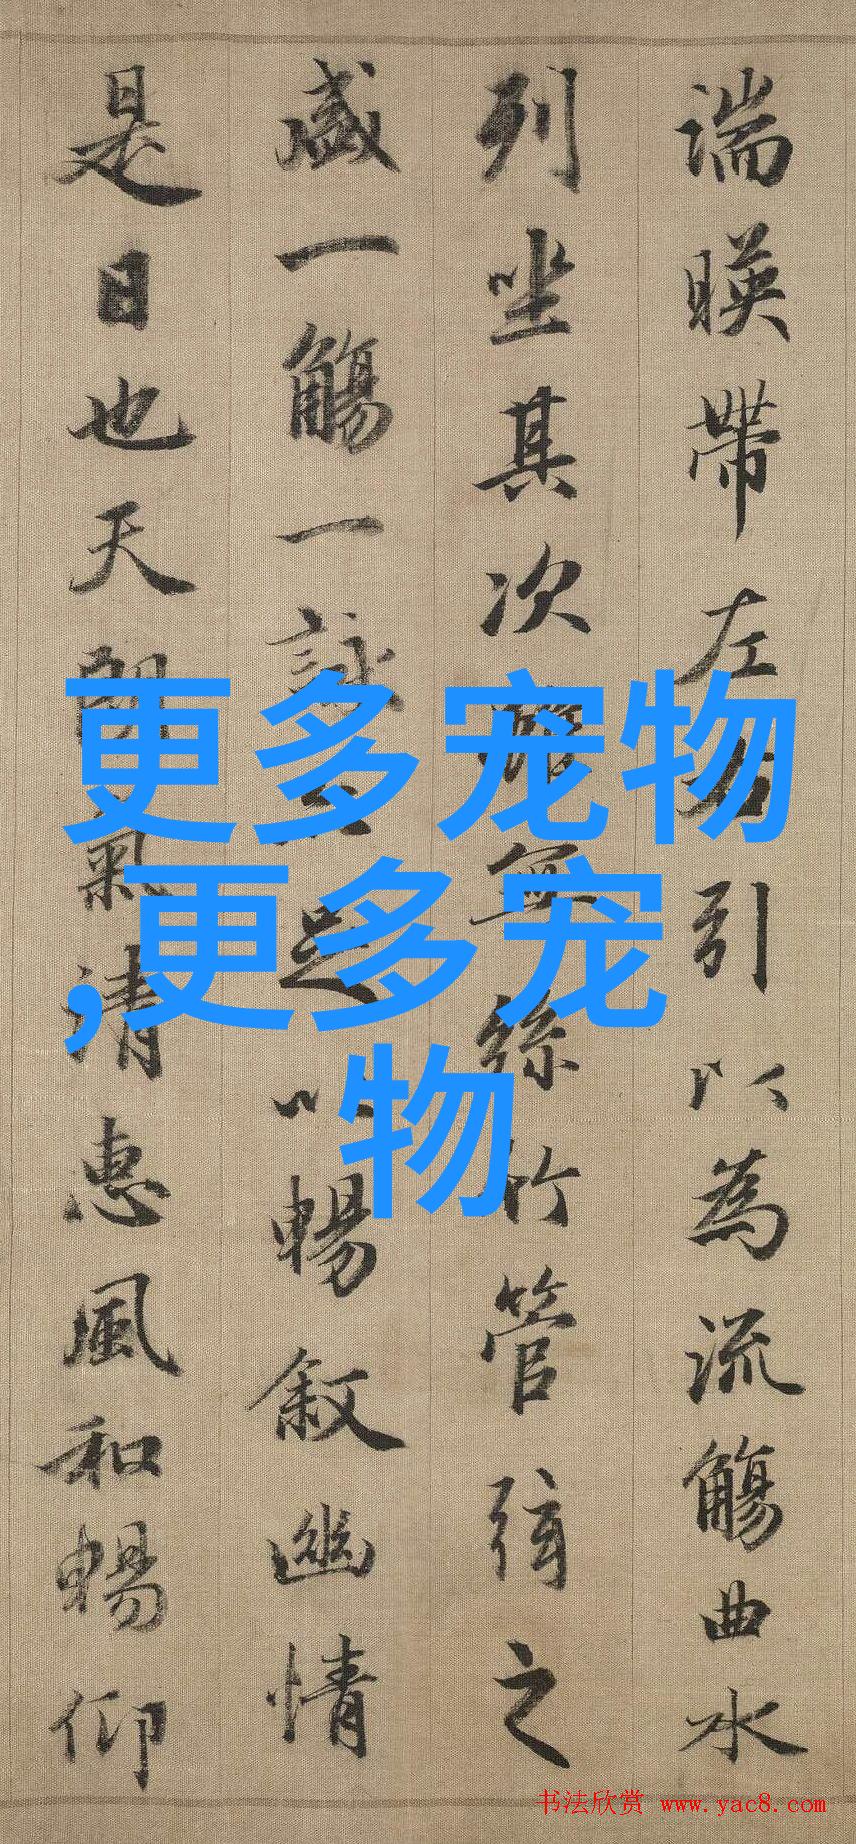 湍暎帶左右引以為流觴曲水
列坐其次雖無絲竹管弦之
盛一觴一詠亦足以暢叙幽情
是日也天朗氣清惠風和暢仰
更多宠物
,更多宠
物
书法欣赏 www.yac8.com